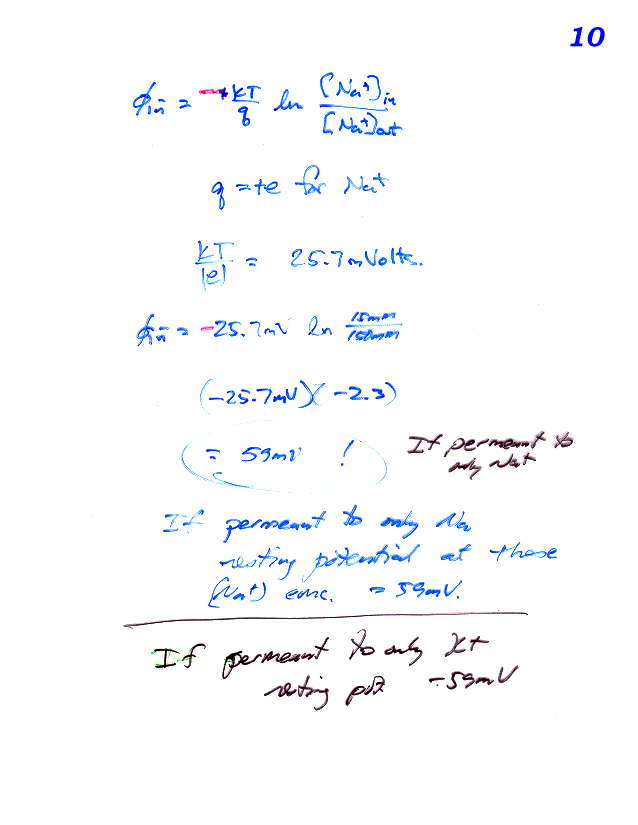 10
ϕin = - kT/q ln [Na+]in/[Na+]out
q = +e for Na+
kT/|e| = 25.7 mVolts.
ϕin = -25.7mV ln 15mm/150mm
(-25.7mV)(-2.3)
= 59mV !
If permeant to
only Na+
If permeant to only Na
resting potential at these
[Na+] conc. = 59mV.
If permeant to only K+
resting pot. -59mV